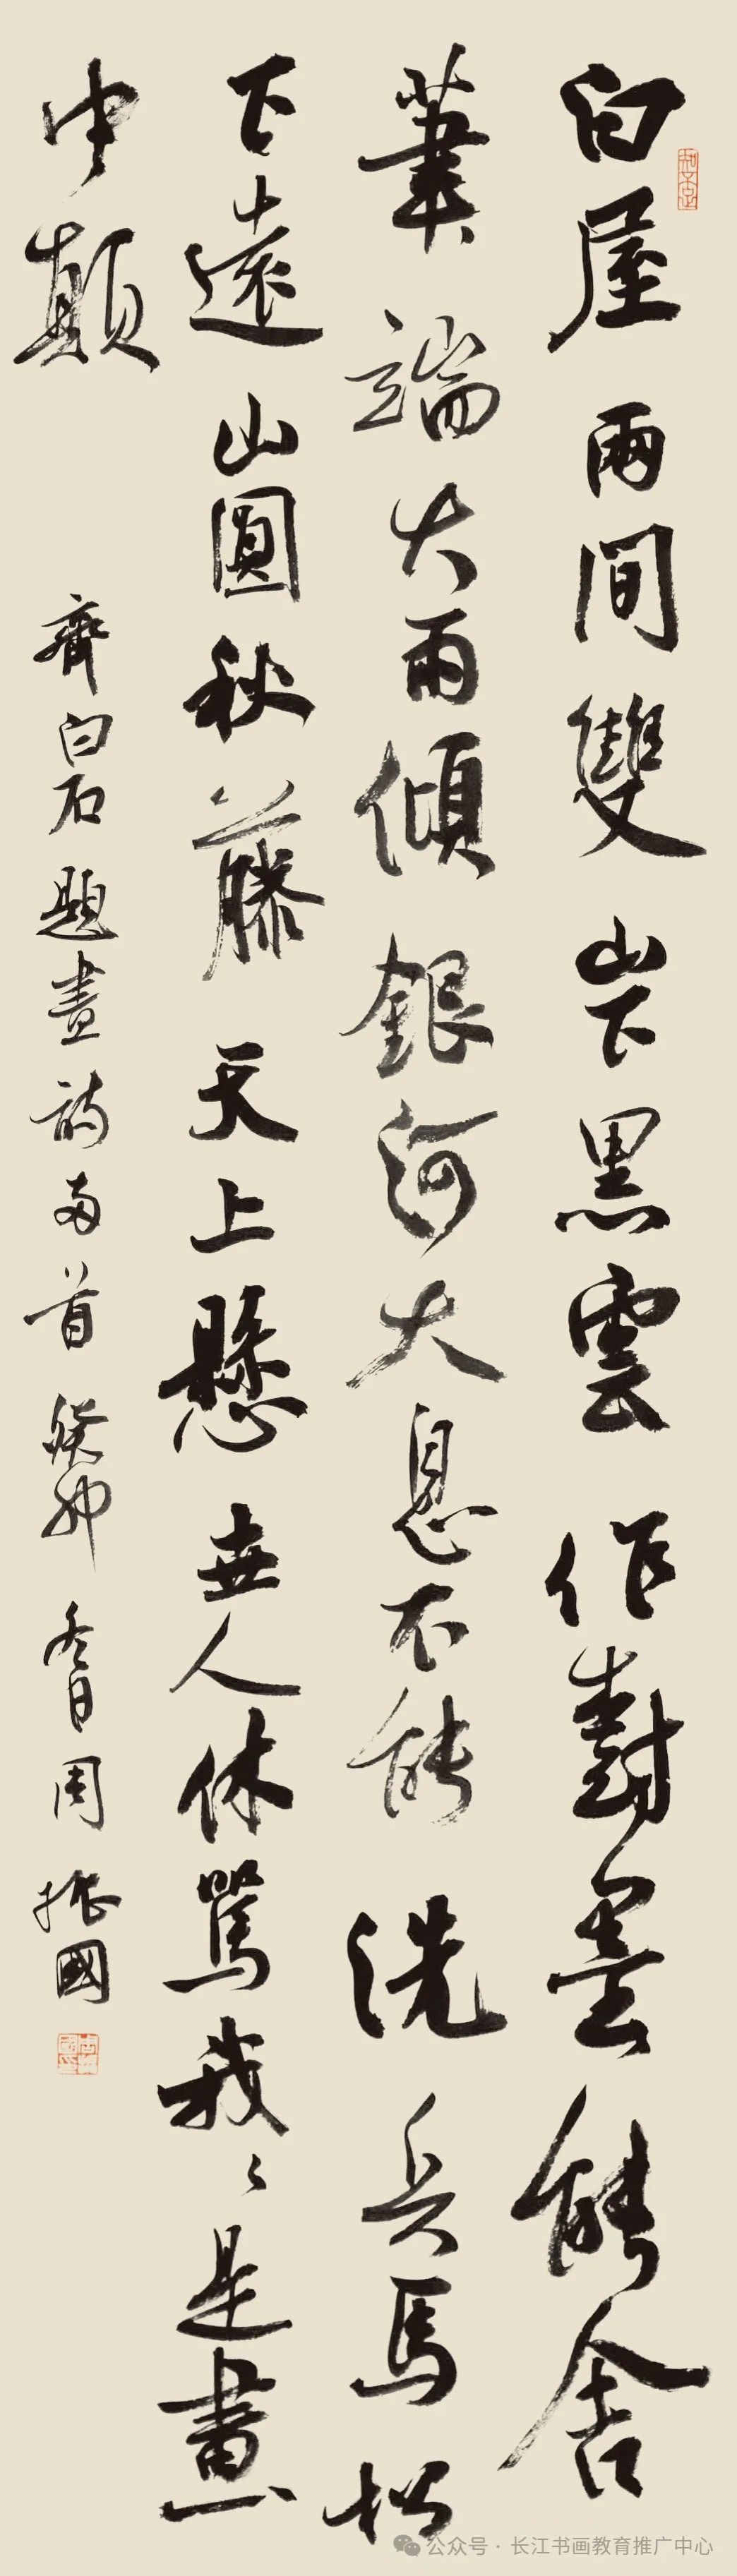 白屋兩間雙山下黑雲作對墨能舍
筆端大雨傾銀河大息不能洗兵馬松
下遠山圓秋藤天上懸世人休罵我々是畫
中顛
齊白石題畫詩兩首癸卯冬日周振國
知不足
公众号·长江书画教育推广中心